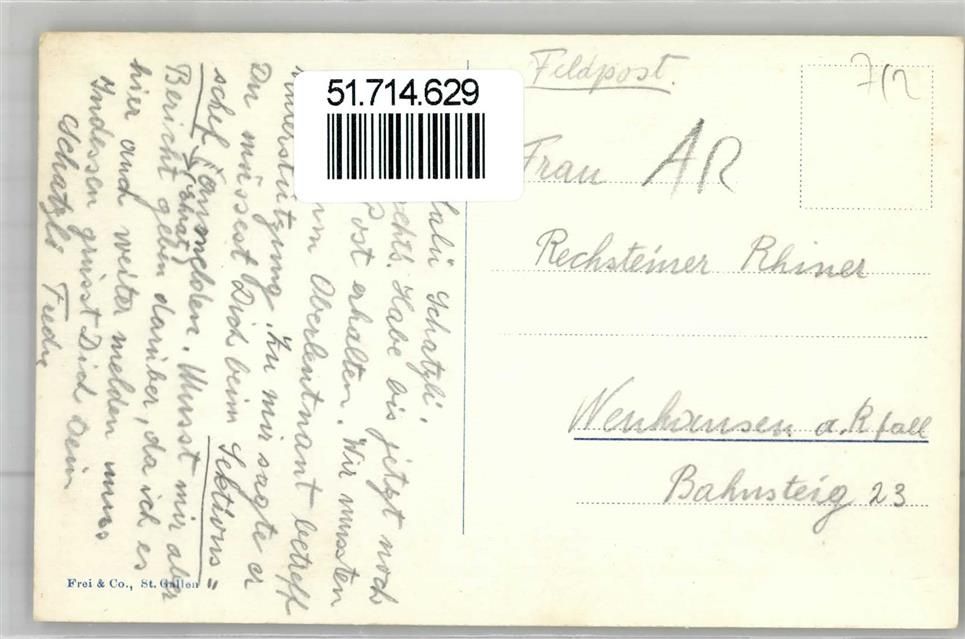 51.714.629
Feldpost.
7/2
Frau AR
Rechsteiner Rhiner
Neuhausen a. Rfall
Bahnsteig 23
Schatzli,
Habe bis jetzt noch
Post erhalten. Wir mussten
Oberleutnant betreff
Unterstützung. Zu mir sagte er
Du müssest Dich beim Sektions=
schef (Neuhaus) anmelden. Mussst mir aber
Bericht geben darüber, da ich es
hier auch weiter melden muss
Indessen grüsst Dich Dein
Schatzli
Frei & Co., St. Gallen